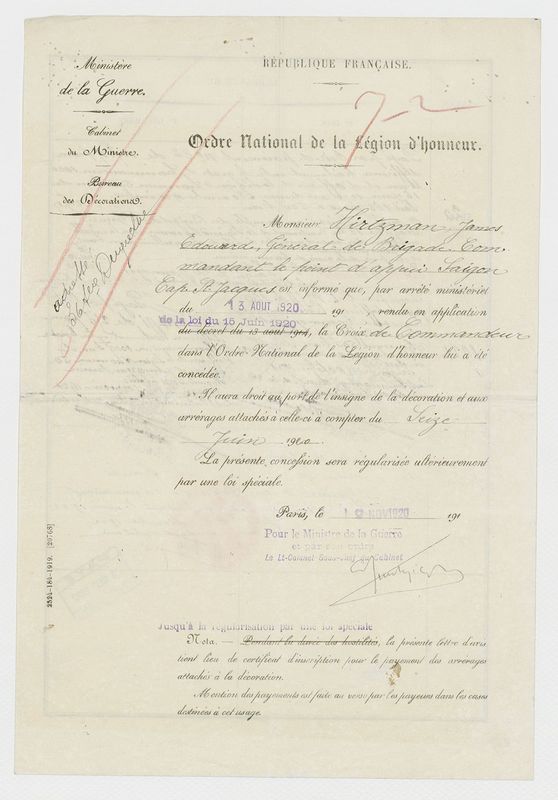 Ministère
de la Guerre.
Cabinet
du Ministre.
Bureau
des Décorations.
RÉPUBLIQUE FRANÇAISE.
7-2
Ordre National de la Légion d'honneur.
Monsieur Hirtzman, James
Edouard, Général de Brigade Com
mandant le point d'appui Saigon
Cap St Jacques est informé que, par arrêté ministériel
du 13 AOUT 1920 191 rendu en application
de la loi du 15 Juin 1920
du décret du 13 août 1914, la Croix de Commandeur
dans l'Ordre National de la Légion d'honneur lui a été
concédée.
Il aura droit au port de l'insigne de la décoration et aux
arrérages attachés à celle-ci à compter du Seize
Juin 1920.
La présente concession sera régularisée ultérieurement
par une loi spéciale.
Paris, le 12 NOV 1920 191
Pour le Ministre de la Guerre
et par son ordre
Le Lt-Colonel Sous-Chef du Cabinet
Jusqu'à la régularisation par une loi spéciale
Nota. — Pendant la durée des hostilités, la présente lettre d'avis
tient lieu de certificat d'inscription pour le payement des arrérages
attachés à la décoration.
Mention des payements est faite au verso par les payeurs dans les cases
destinées à cet usage.
2524-184-1919. [20768]